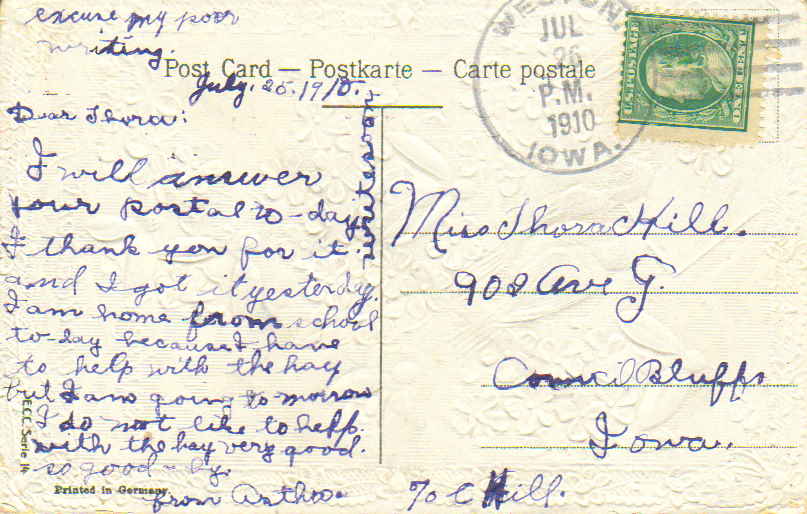 excuse my poor
writing.
Post Card — Postkarte — Carte postale
July. 25. 1910.
Dear Thora:
I will answer
your postal to-day
I thank you for it.
and I got it yesterday.
I am home from school
to-day because I have
to help with the hay
but I am going to-morrow
I do not like to help.
with the hay very good.
so good-by.
from
write soon
Printed in Germany
Serie
WESTON
JUL
P.M.
1910
IOWA.
U.S. POSTAGE
ONE CENT
Miss Thora Hill.
902 Ave G.
Council Bluffs
Iowa.
% C Hill.